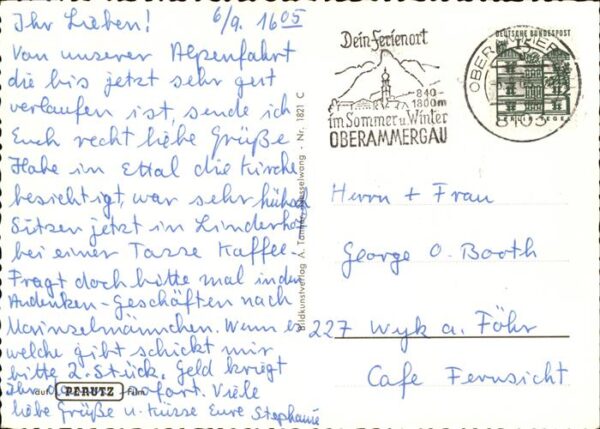 Ihr Lieben! 6/9. 16 05
Von unserer Alpenfahrt
die bis jetzt sehr gut
verlaufen ist, sende ich
Euch recht liebe Grüße
Habe in Ettal die Kirche
besichtigt, war sehr hübsch
Sitzen jetzt in Linderhof
bei einer Tasse Kaffee.
Fragt doch bitte mal in den
Andenken-Geschäften nach
Mainzelmännchen. Wenn es
welche gibt schickt mir
bitte 2 Stück. Geld kriegt
Ihr dann sofort. Viele
liebe Grüße u. Küsse Eure Stephanie
auf PERUTZ Film
Bildkunstverlag A. Tanner, Nesselwang - Nr. 1821 C
Dein Ferienort
840-
1800m
im Sommer u. Winter
OBERAMMERGAU
DEUTSCHE BUNDESPOST
8103
Herrn + Frau
George O. Booth
227 Wyk a. Föhr
Cafe Fernsicht